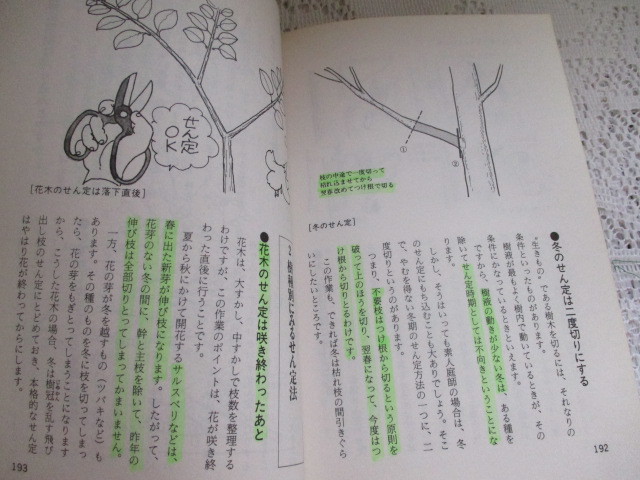 枝の中途で一度切って
枯れ込ませてから
翌春改めてつけ根で切る
①
②
[冬のせん定]
●冬のせん定は二度切りにする
“生きもの”である樹木を切るには、それなりの
条件といったものがあります。
樹液が最もよく樹内で動いているときが、その
条件にかなっているときといえます。
ですから、樹液の動きが少ない冬は、ある種を
除いてせん定時期としては不向きということにな
しかし、そうはいっても素人庭師の場合は、冬
のせん定にもち込むことも大ありでしょう。そこ
で、やむを得ない冬期のせん定方法の一つに、二
度切りというのがあります。
つまり、不要枝はつけ根から切るという原則を
破って上のほうを切り、翌春になって、今度はつ
け根から切りとるわけです。
この作業も、できれば冬は枯れ枝の間引きぐら
いにしたいところです。
192
せん定
OK
[花木のせん定は落下直後]
2 樹種別にみるせん定法
●花木のせん定は咲き終わったあと
花木は、大すかし、中すかしで枝数を整理する
わけですが、この作業のポイントは、花が咲き終
わった直後に行うことです。
夏から秋にかけて開花するサルスベリなどは、
春に出た新芽が伸び枝になります。したがって、
花芽のない冬の間に、幹と主枝を除いて、昨年の
伸び枝は全部切りとってしまってかまいません。
一方、花の芽が冬を越すもの(ツバキなど)も
あります。その種のものを冬に枝を切ってしまっ
たら、花の芽をもぎとってしまうことになります
から、こうした花木の場合、冬は樹冠を乱す飛び
出し枝のせん定にとどめておき、本格的なせん定
はやはり花が終わってからにします。
193